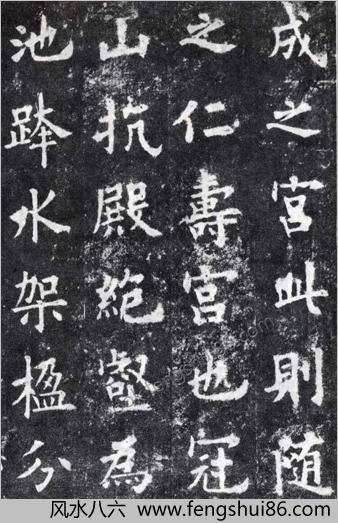 成之宮此則随
之仁壽宮也冠
山抗殿絶壑為
池跨水架楹分
风水八六 www.fengshui86.com